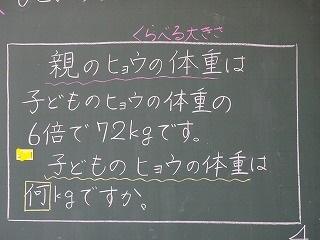 くらべる大きさ
親のヒョウの体重は
子どものヒョウの体重の
6倍で72kgです。
子どものヒョウの体重は
何kgですか。